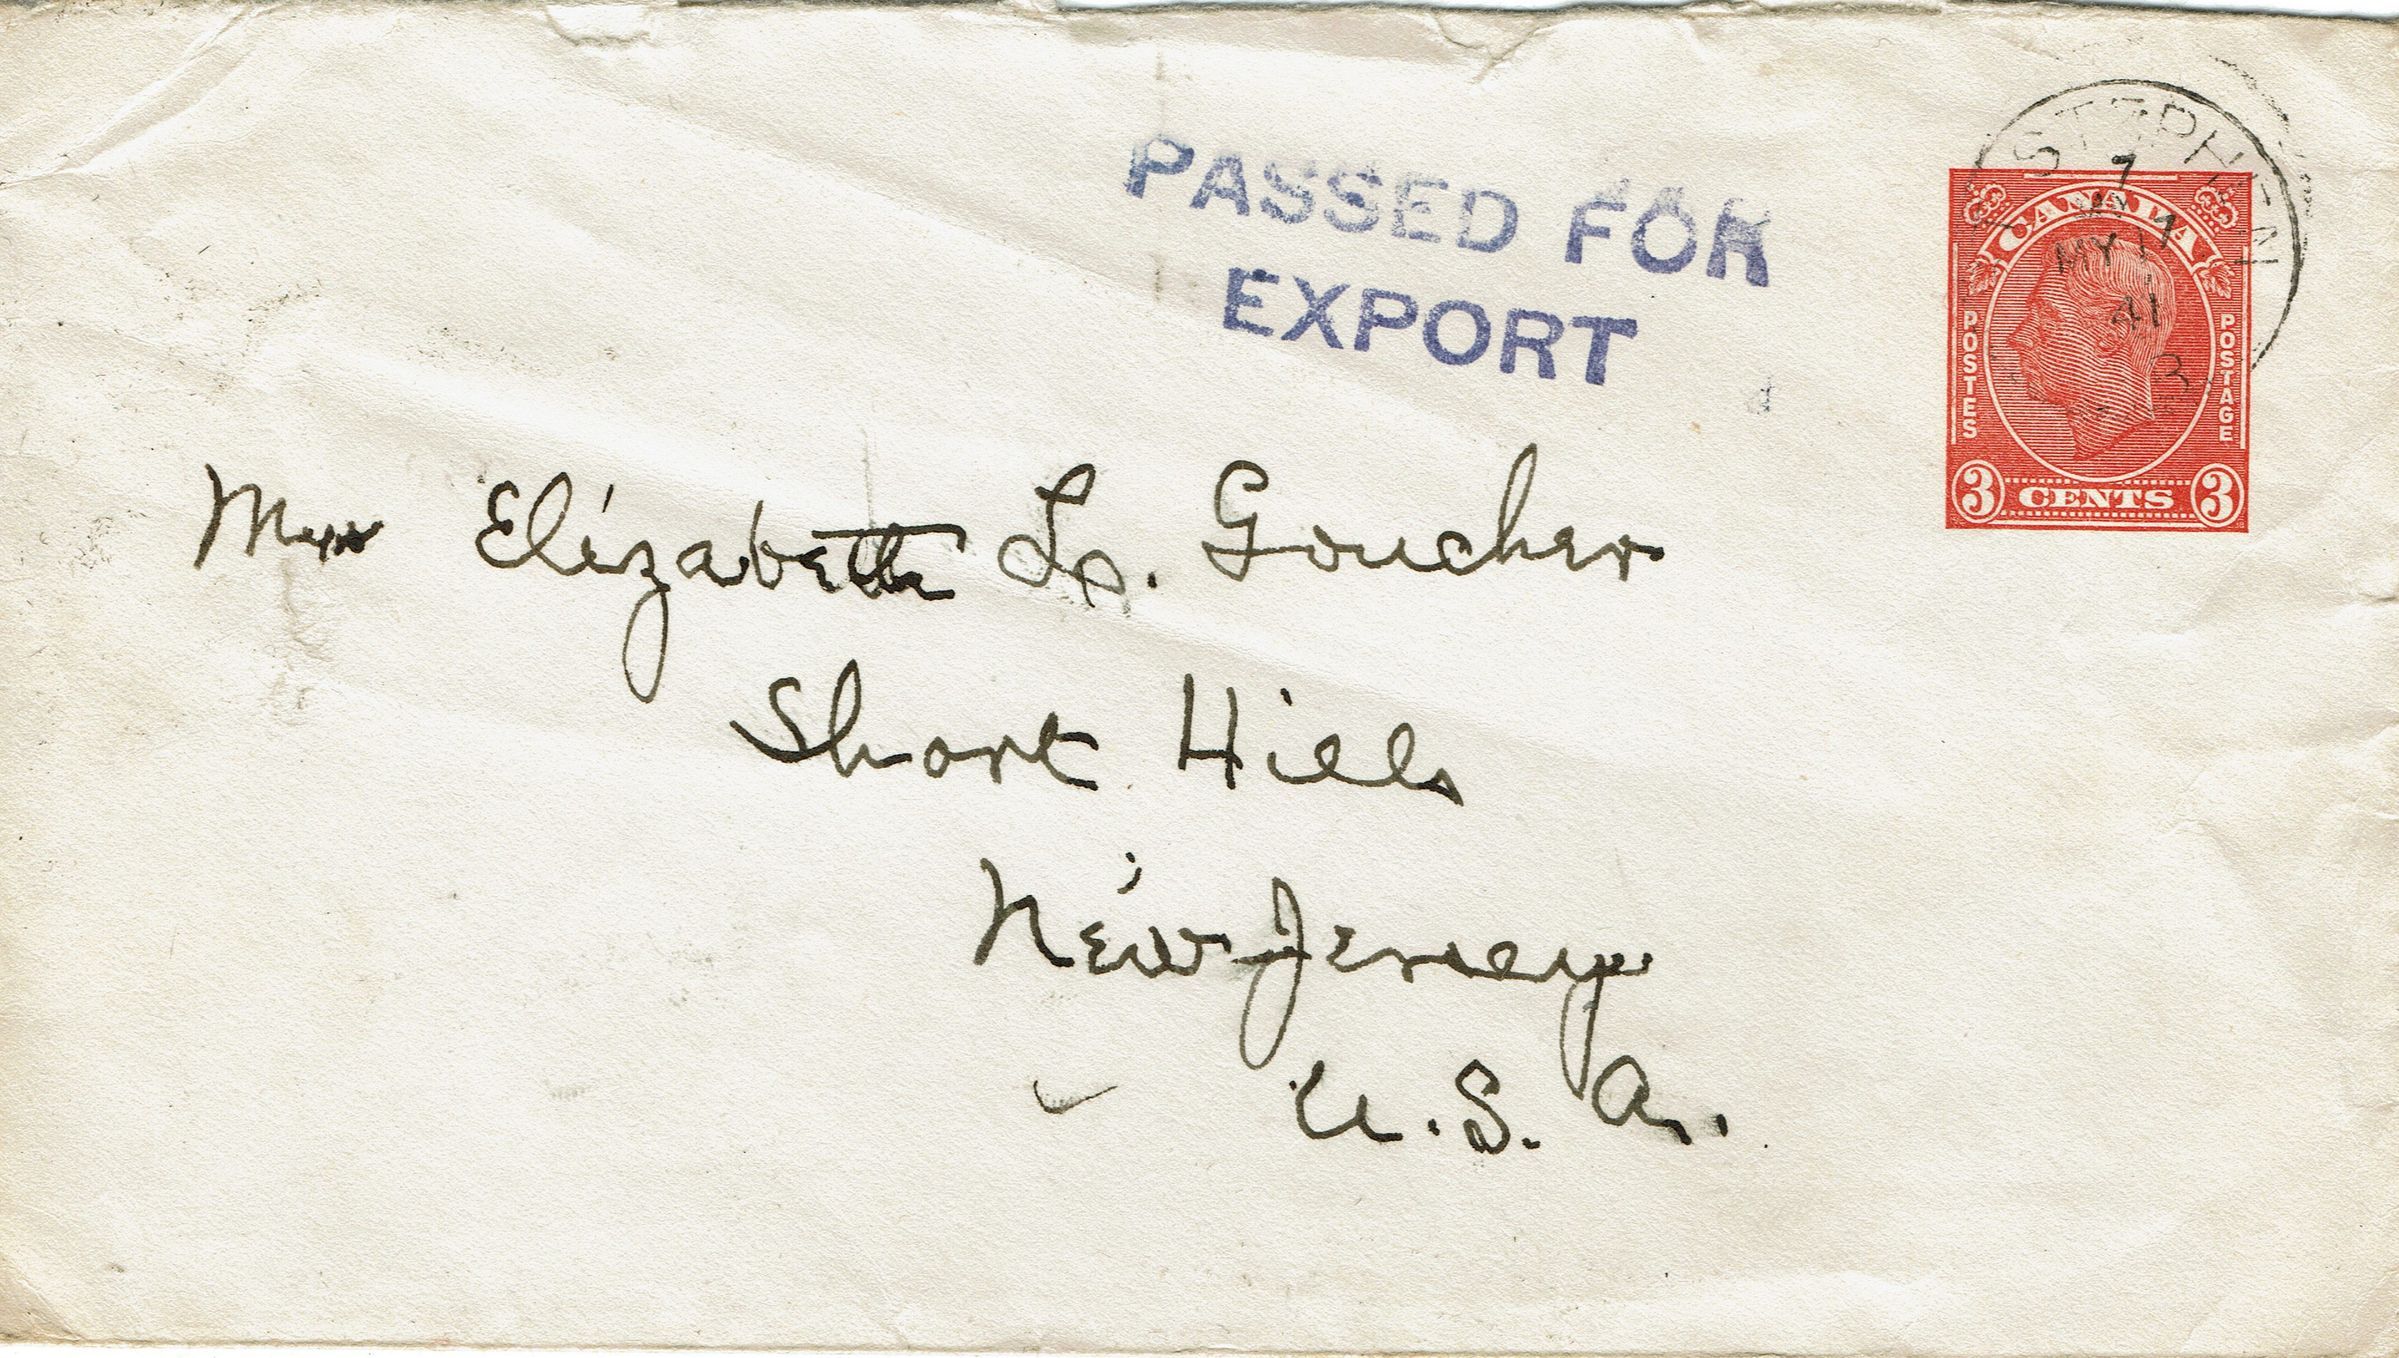 PASSED FOR
EXPORT
ST STEPHEN
7
MY 17
41
CANADA
POSTES
POSTAGE
3 CENTS 3
Mrs Elizabeth L. Goucher
Short Hills
New Jersey
U.S.A.